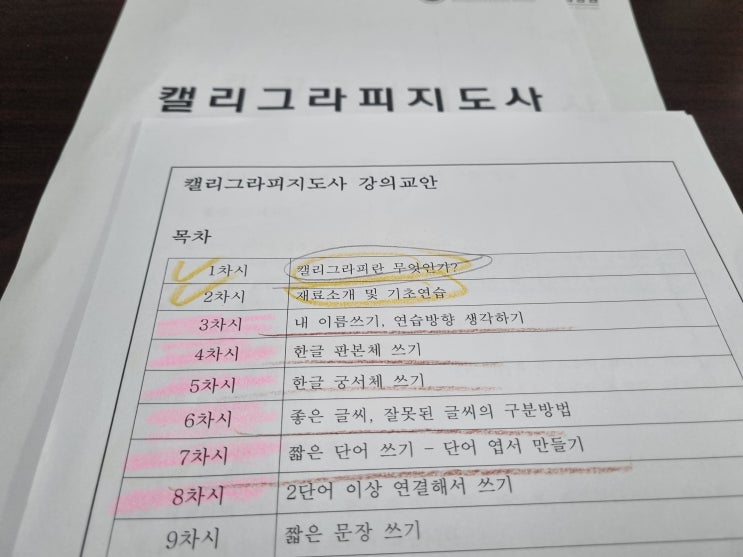 캘리그라피지도사
캘리그라피지도사 강의교안
목차
1차시 캘리그라피란 무엇인가?
2차시 재료소개 및 기초연습
3차시 내 이름쓰기, 연습방향 생각하기
4차시 한글 판본체 쓰기
5차시 한글 궁서체 쓰기
6차시 좋은 글씨, 잘못된 글씨의 구분방법
7차시 짧은 단어 쓰기 - 단어 엽서 만들기
8차시 2단어 이상 연결해서 쓰기
9차시 짧은 문장 쓰기